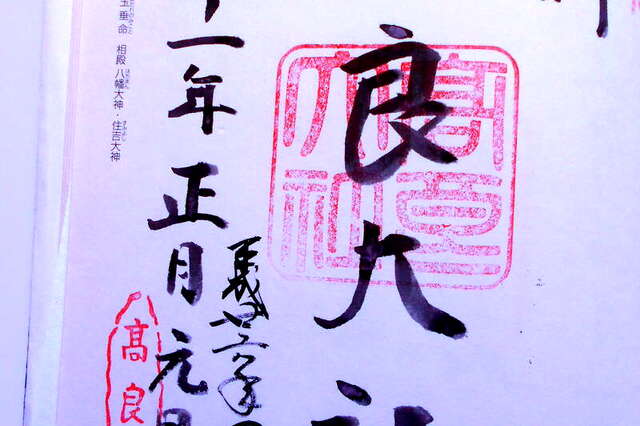 良大社
高良大社
十一年正月元日
玉垂命 相殿 八幡大神・住吉大神
高良